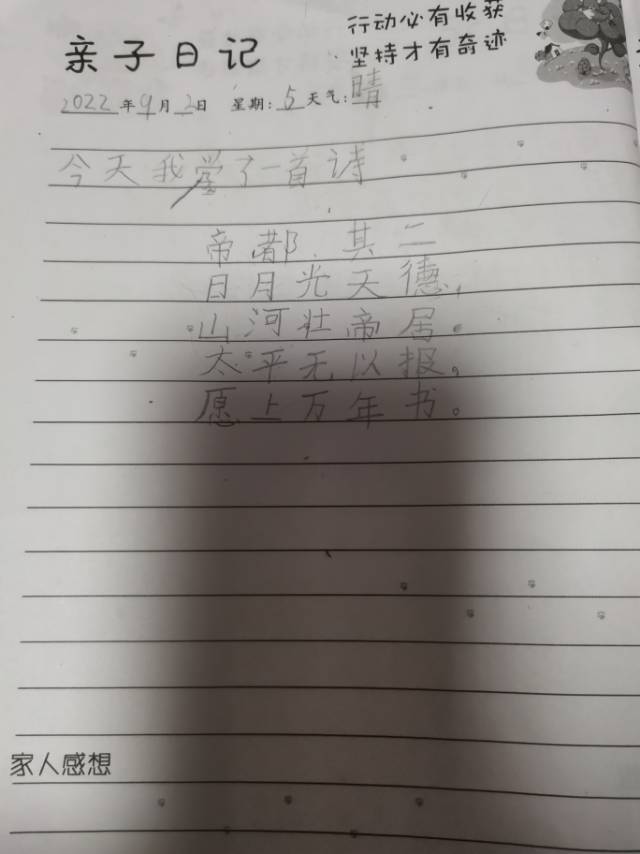 行动必有收获
坚持才有奇迹
亲子日记
2022年9月2日 星期:5 天气:晴
今天我学了一首诗
帝都.其二
日月光天德,
山河壮帝居。
太平无以报。
愿上万年书。
家人感想